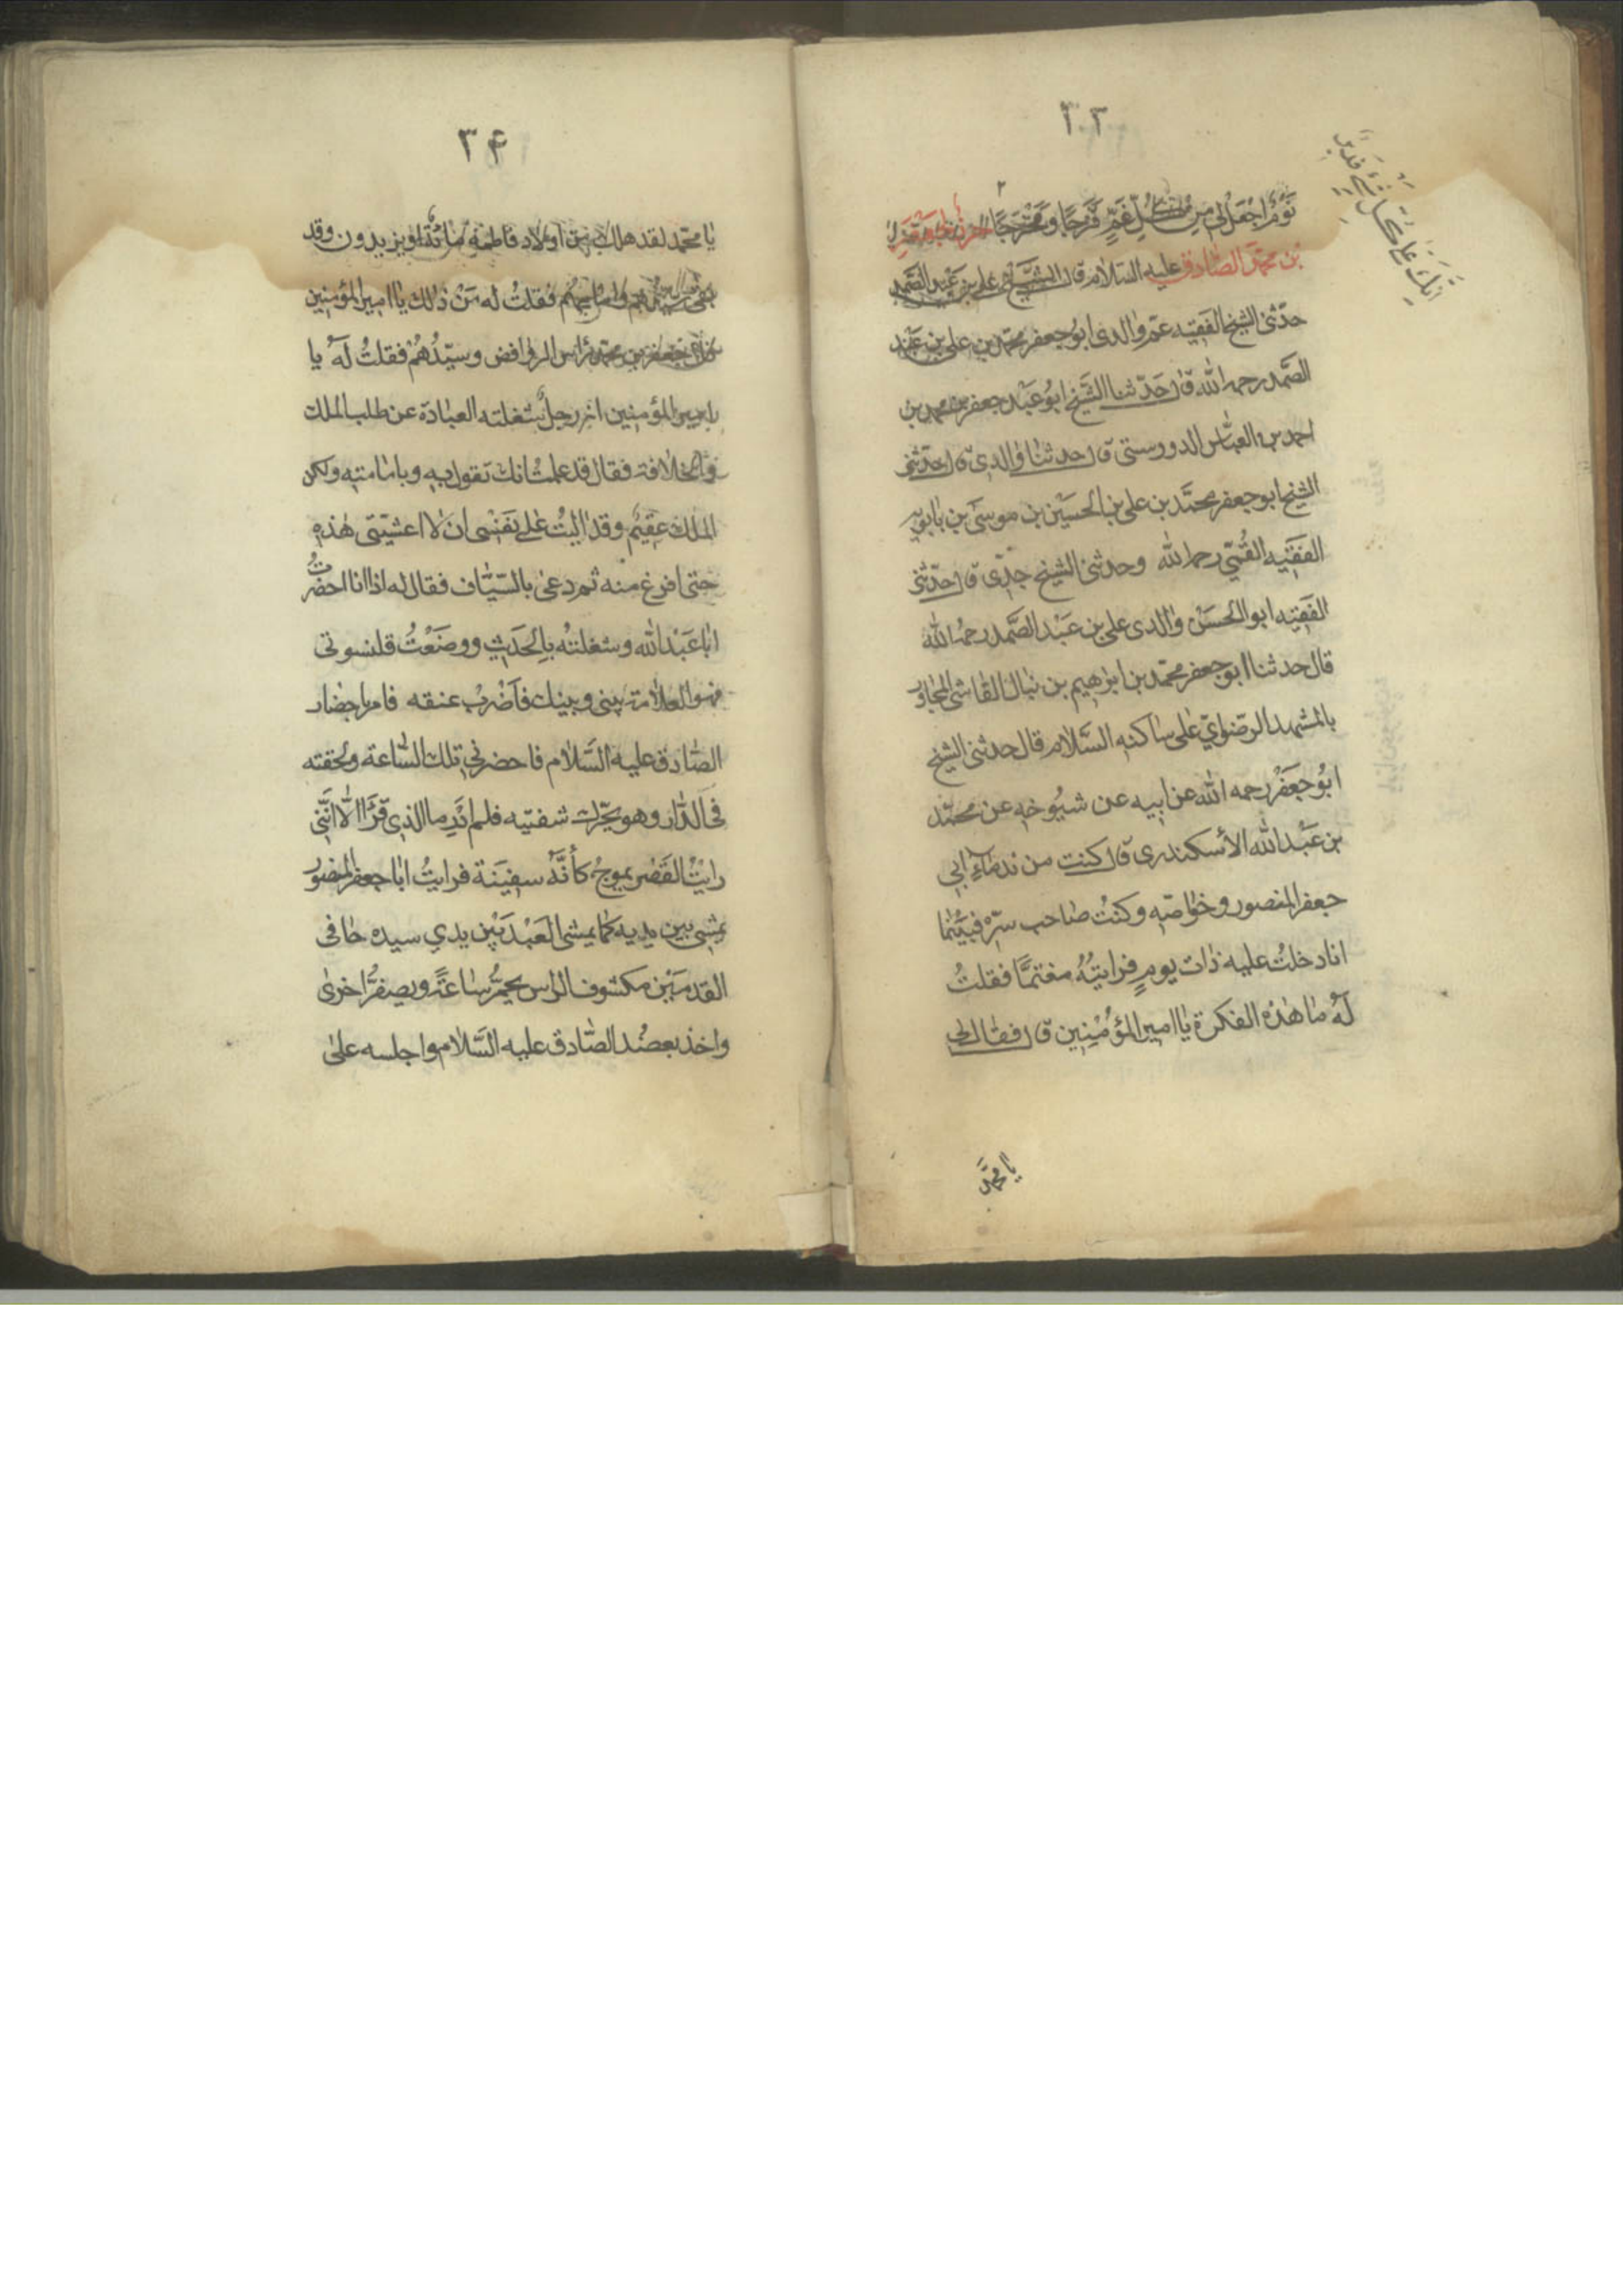 ٣٣
نوم اجعل لى من كل غم فرجا ومخرجا حرز
انك على كل شئ قدير
بن محمد الصادق عليه السلام قال الشيخ على بن عبد الصمد
حدثنى الشيخ الفقيه عم والدى ابو جعفر محمد بن على بن عبد
الصمد رحمه الله قال حدثنا الشيخ ابو عبد جعفر بن محمد بن
احمد بن العباس الدورستى قال حدثنا والدى قال حدثنى
الشيخ ابو جعفر محمد بن على بن الحسين بن موسى بن بابويه
الفقيه القمى رحمه الله وحدثنى الشيخ جدى قال حدثنى
الفقيه ابو الحسن والدى على بن عبد الصمد رحمه الله
قال حدثنا ابو جعفر محمد بن ابراهيم بن نبال القاشى المجاور
بالمشهد الرضوى على ساكنه السلام قال حدثنى الشيخ
ابو جعفر رحمه الله عن ابيه عن شيوخه عن محمد
بن عبد الله الأسكندرى قال كنت من ندماء ابى
جعفر المنصور وخواصه وكنت صاحب سره فبينما
انا دخلت عليه ذات يوم فرايته مغتما فقلت
له ما هذه الفكرة يا امير المؤمنين قال فقال لى
يا محمد
٣۴
يا محمد لقد هلك من اولاد فاطمة مائة او يزيدون وقد
بقى سيدهم وامامهم فقلت له من ذلك يا امير المؤمنين
قال جعفر بن محمد راس الروافض وسيدهم فقلت له يا
يا امير المؤمنين انه رجل شغلته العبادة عن طلب الملك
والخلافة فقال قد علمت انك تقول به وبامامته ولكن
الملك عقيم وقد اليت على نفسى ان لا اعشيتى هذه
حتى افرغ منه ثم دعى بالسياف فقال له اذا انا احضرت
ابا عبد الله وشغلته بالحديث ووضعت قلنسوتى
فهو العلامة بينى وبينك فاضرب عنقه فامر باحضار
الصادق عليه السلام فاحضر فى تلك الساعة ولحقته
فى الدار وهو يحرك شفتيه فلم ادر ما الذى قرا الا اننى
رايت القصر يموج كأنه سفينة فرايت ابا جعفر المنصور
يمشى بين يديه كما يمشى العبد بين يدى سيده حافى
القدمين مكشوف الراس يحمر ساعة ويصفر اخرى
واخذ بعضد الصادق عليه السلام واجلسه على